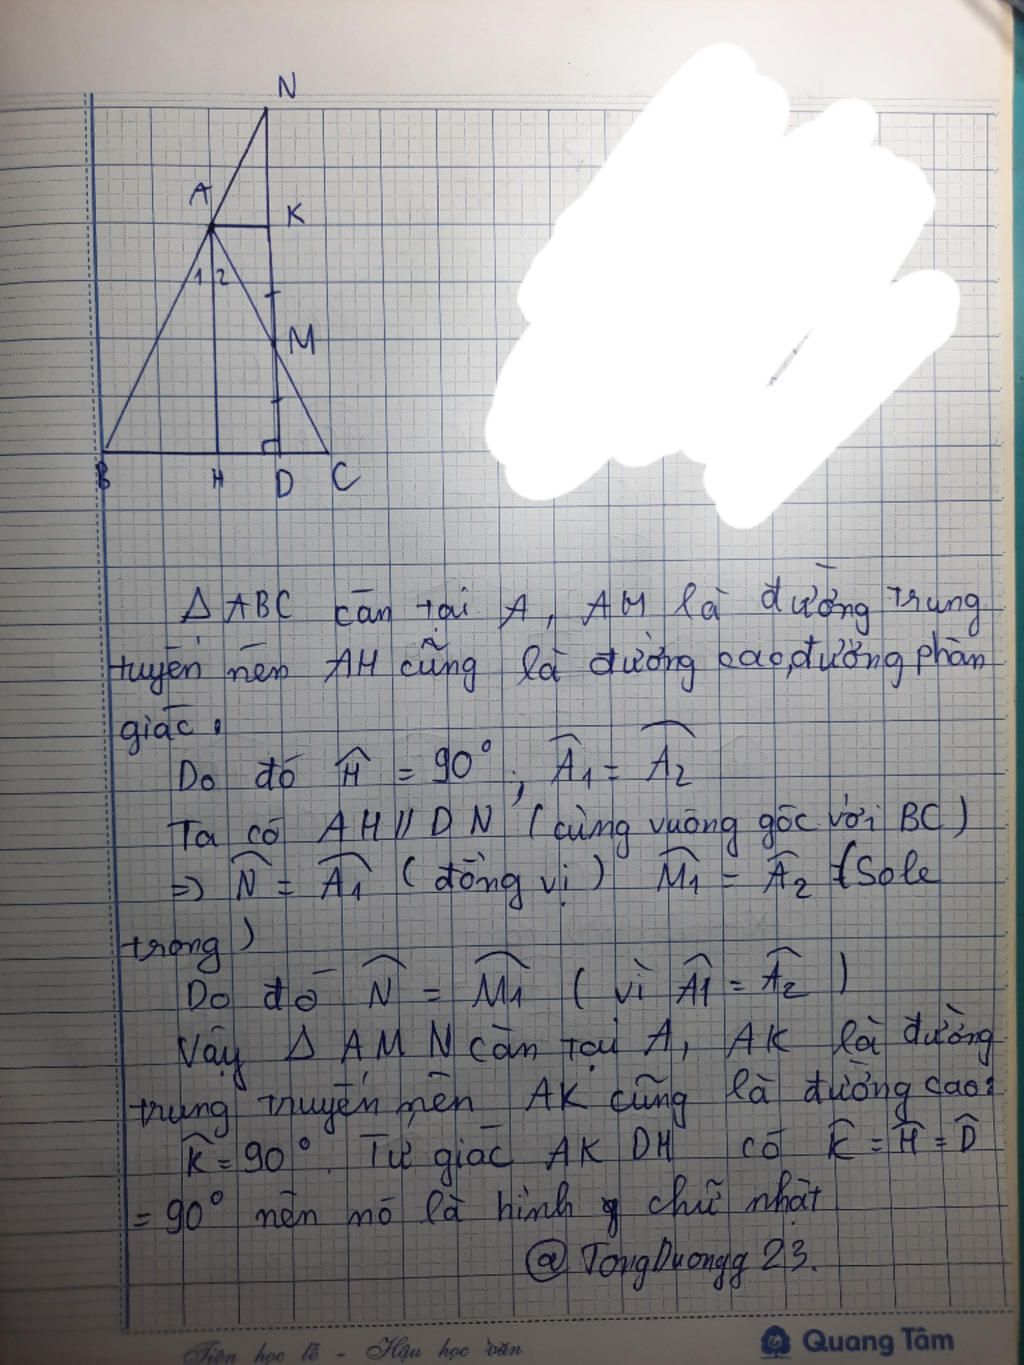 N
A
K
1 2
M
B H D C
Δ ABC cân tại A, AH là đường trung
tuyến nên AH cũng là đường cao, đường phân
giác.
Do đó Ĥ = 90°, Â1 = Â2
Ta có AH // DN (cùng vuông góc với BC)
=> N̂ = Â1 (đồng vị) M̂1 = Â2 (Sole
trong)
Do đó N̂ = M̂1 (vì Â1 = Â2)
Vậy Δ AMN cân tại A, AK là đường
trung truyến nên AK cũng là đường cao:
K̂ = 90°. Tứ giác AKDH có K̂ = Ĥ = D̂
= 90° nên nó là hình chữ nhật
@TongDuongg23.
Tiên học lễ - Hậu học văn
Quang Tâm